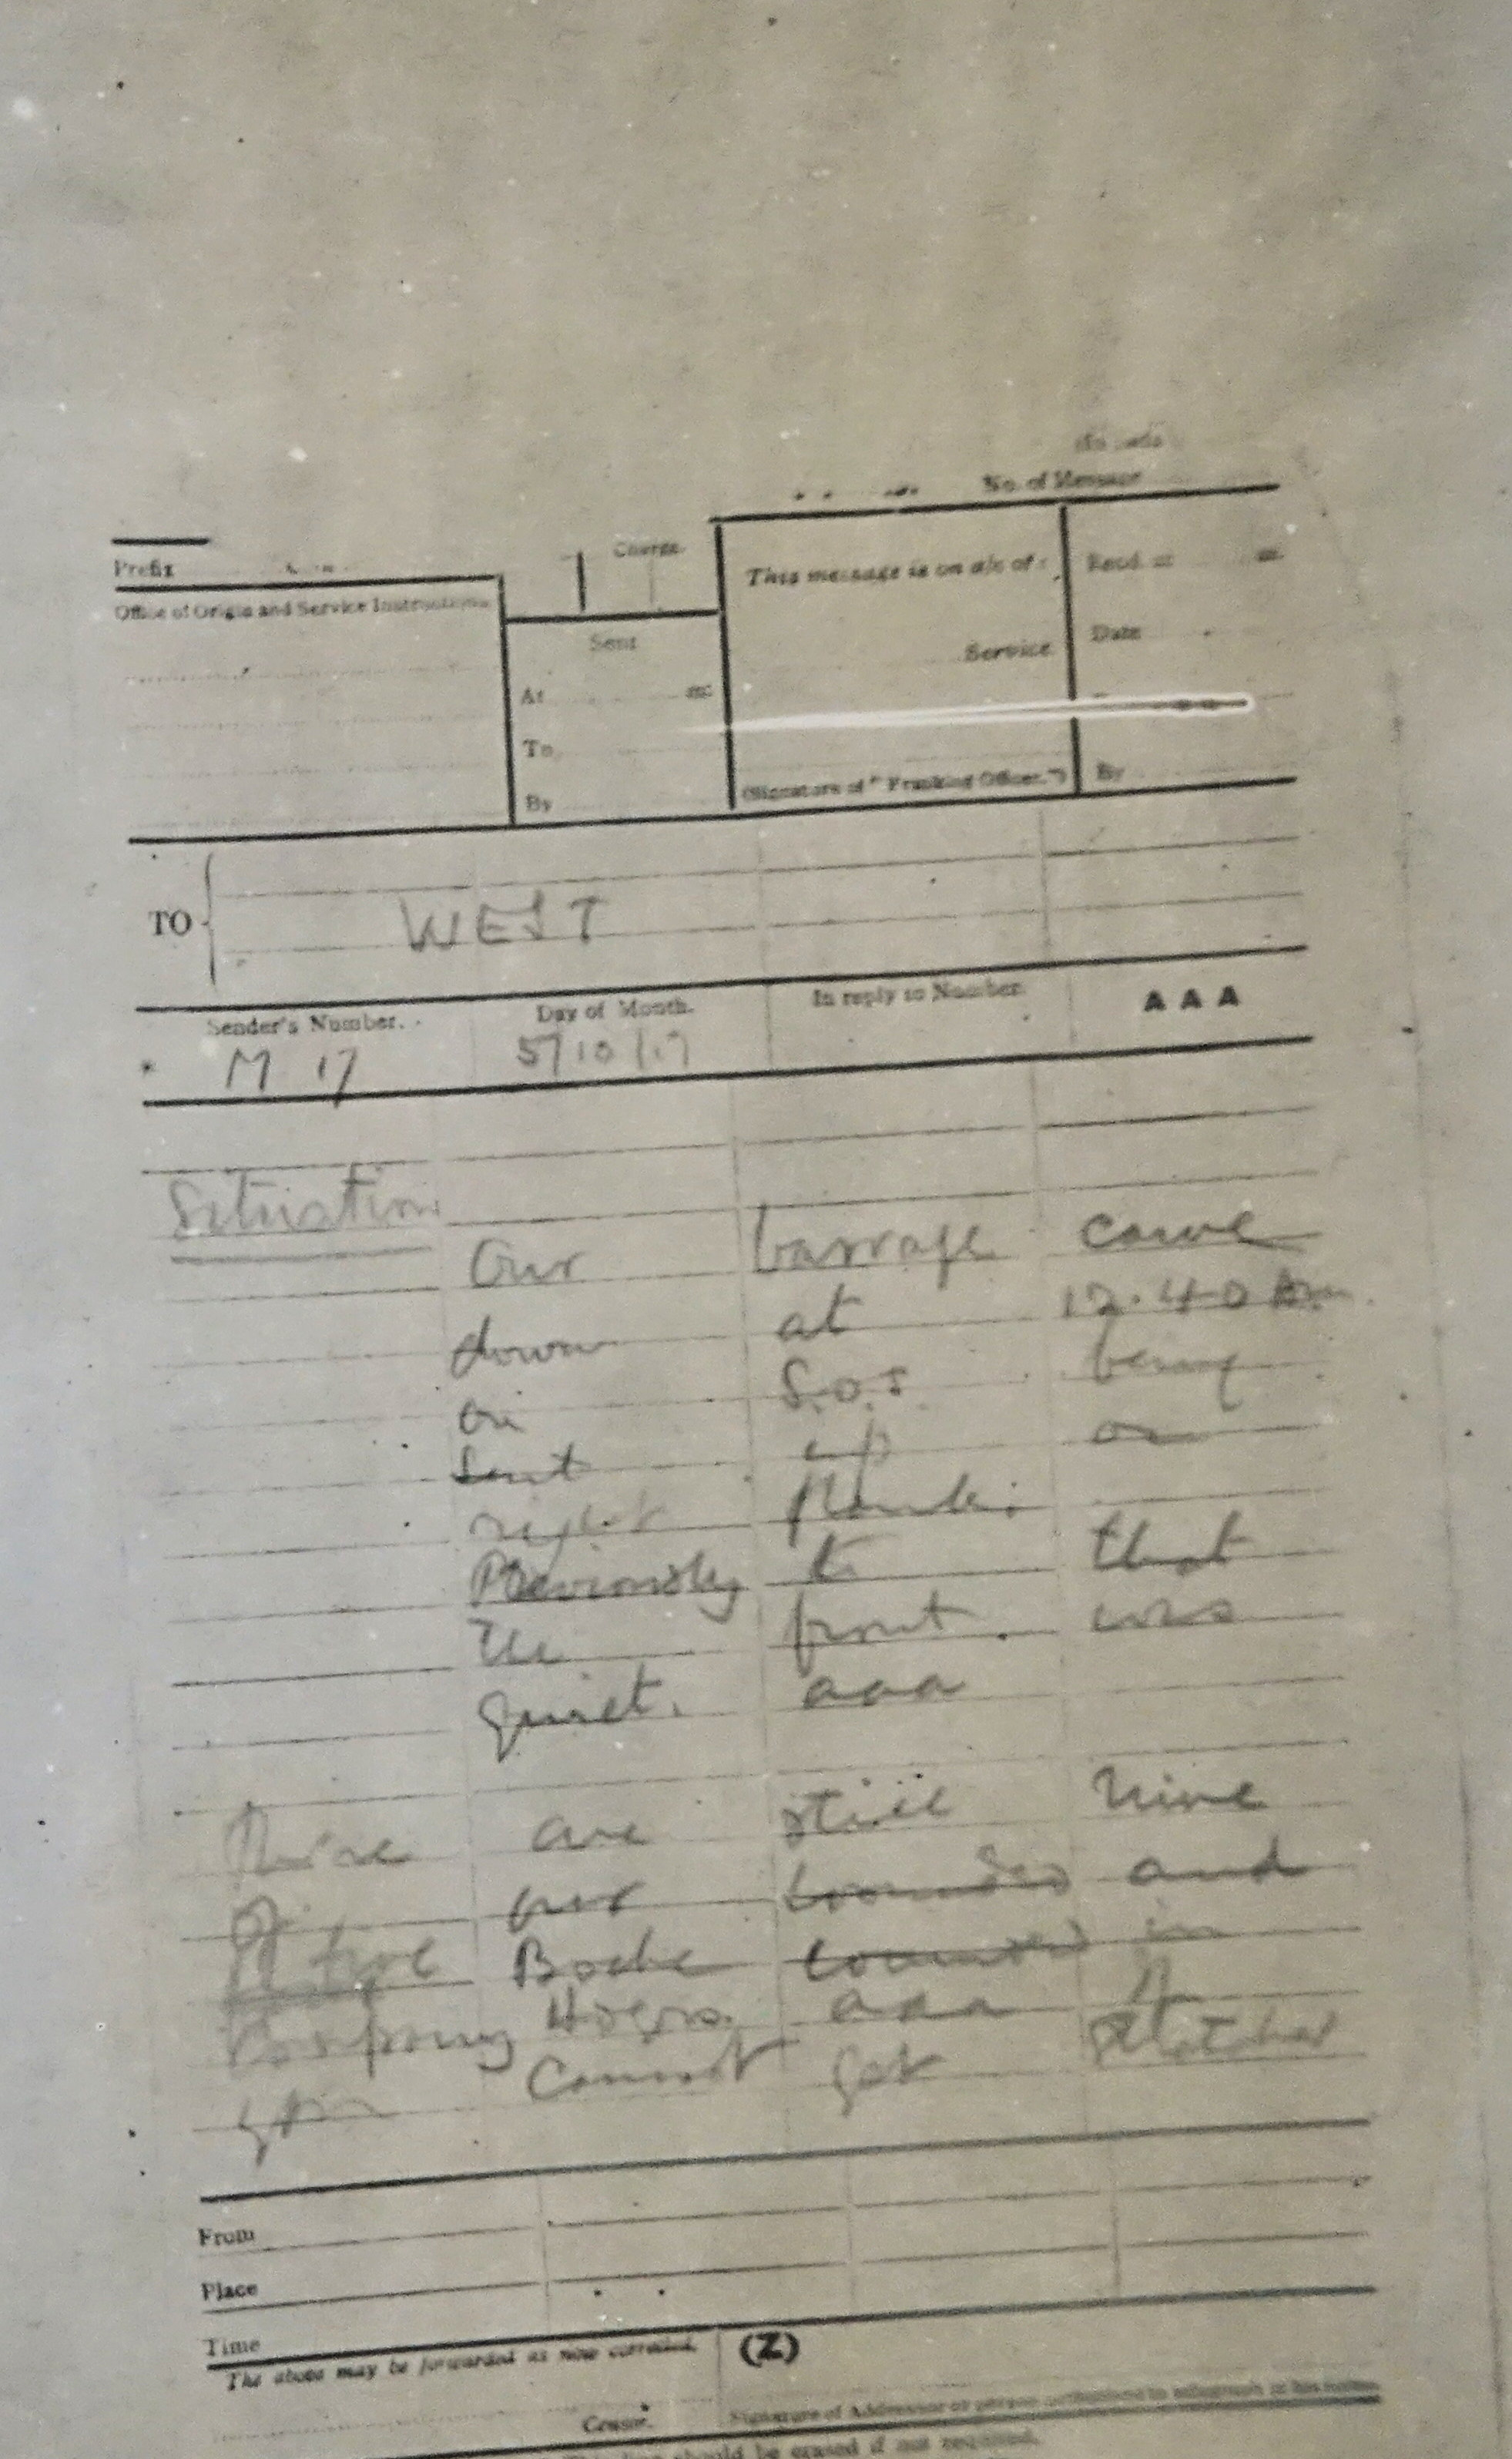 No. of Message
Prefix
Charge
This message is on a/c of:
Recd. at m.
Office of Origin and Service Instructions.
Sent
Date
Service.
At m.
To
By
(Signature of "Franking Officer.")
By
TO WEST
Sender's Number. Day of Month. In reply to Number. AAA
* M 17 5/10/17
Situation
Our barrage came
down at 12.40 am.
on S.O.S. being
sent up on
right flank.
Previously to that
the front. was
quiet. aaa
There are still nine
of our wounded and
Boche wounded in
aaa
Cannot get stretcher
From
Place
Time
The above may be forwarded as now corrected. (Z)
Censor. Signature of Addressor or person authorised to telegraph in his name.
should be erased if not required.